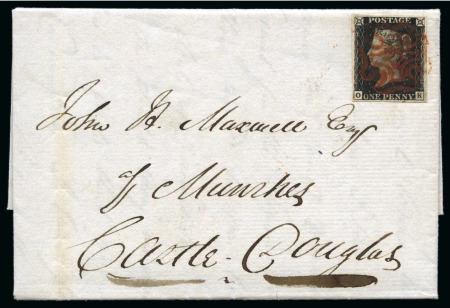 POSTAGE
O K
ONE PENNY
John H. Maxwell Esq
of Munches
Castle-Douglas